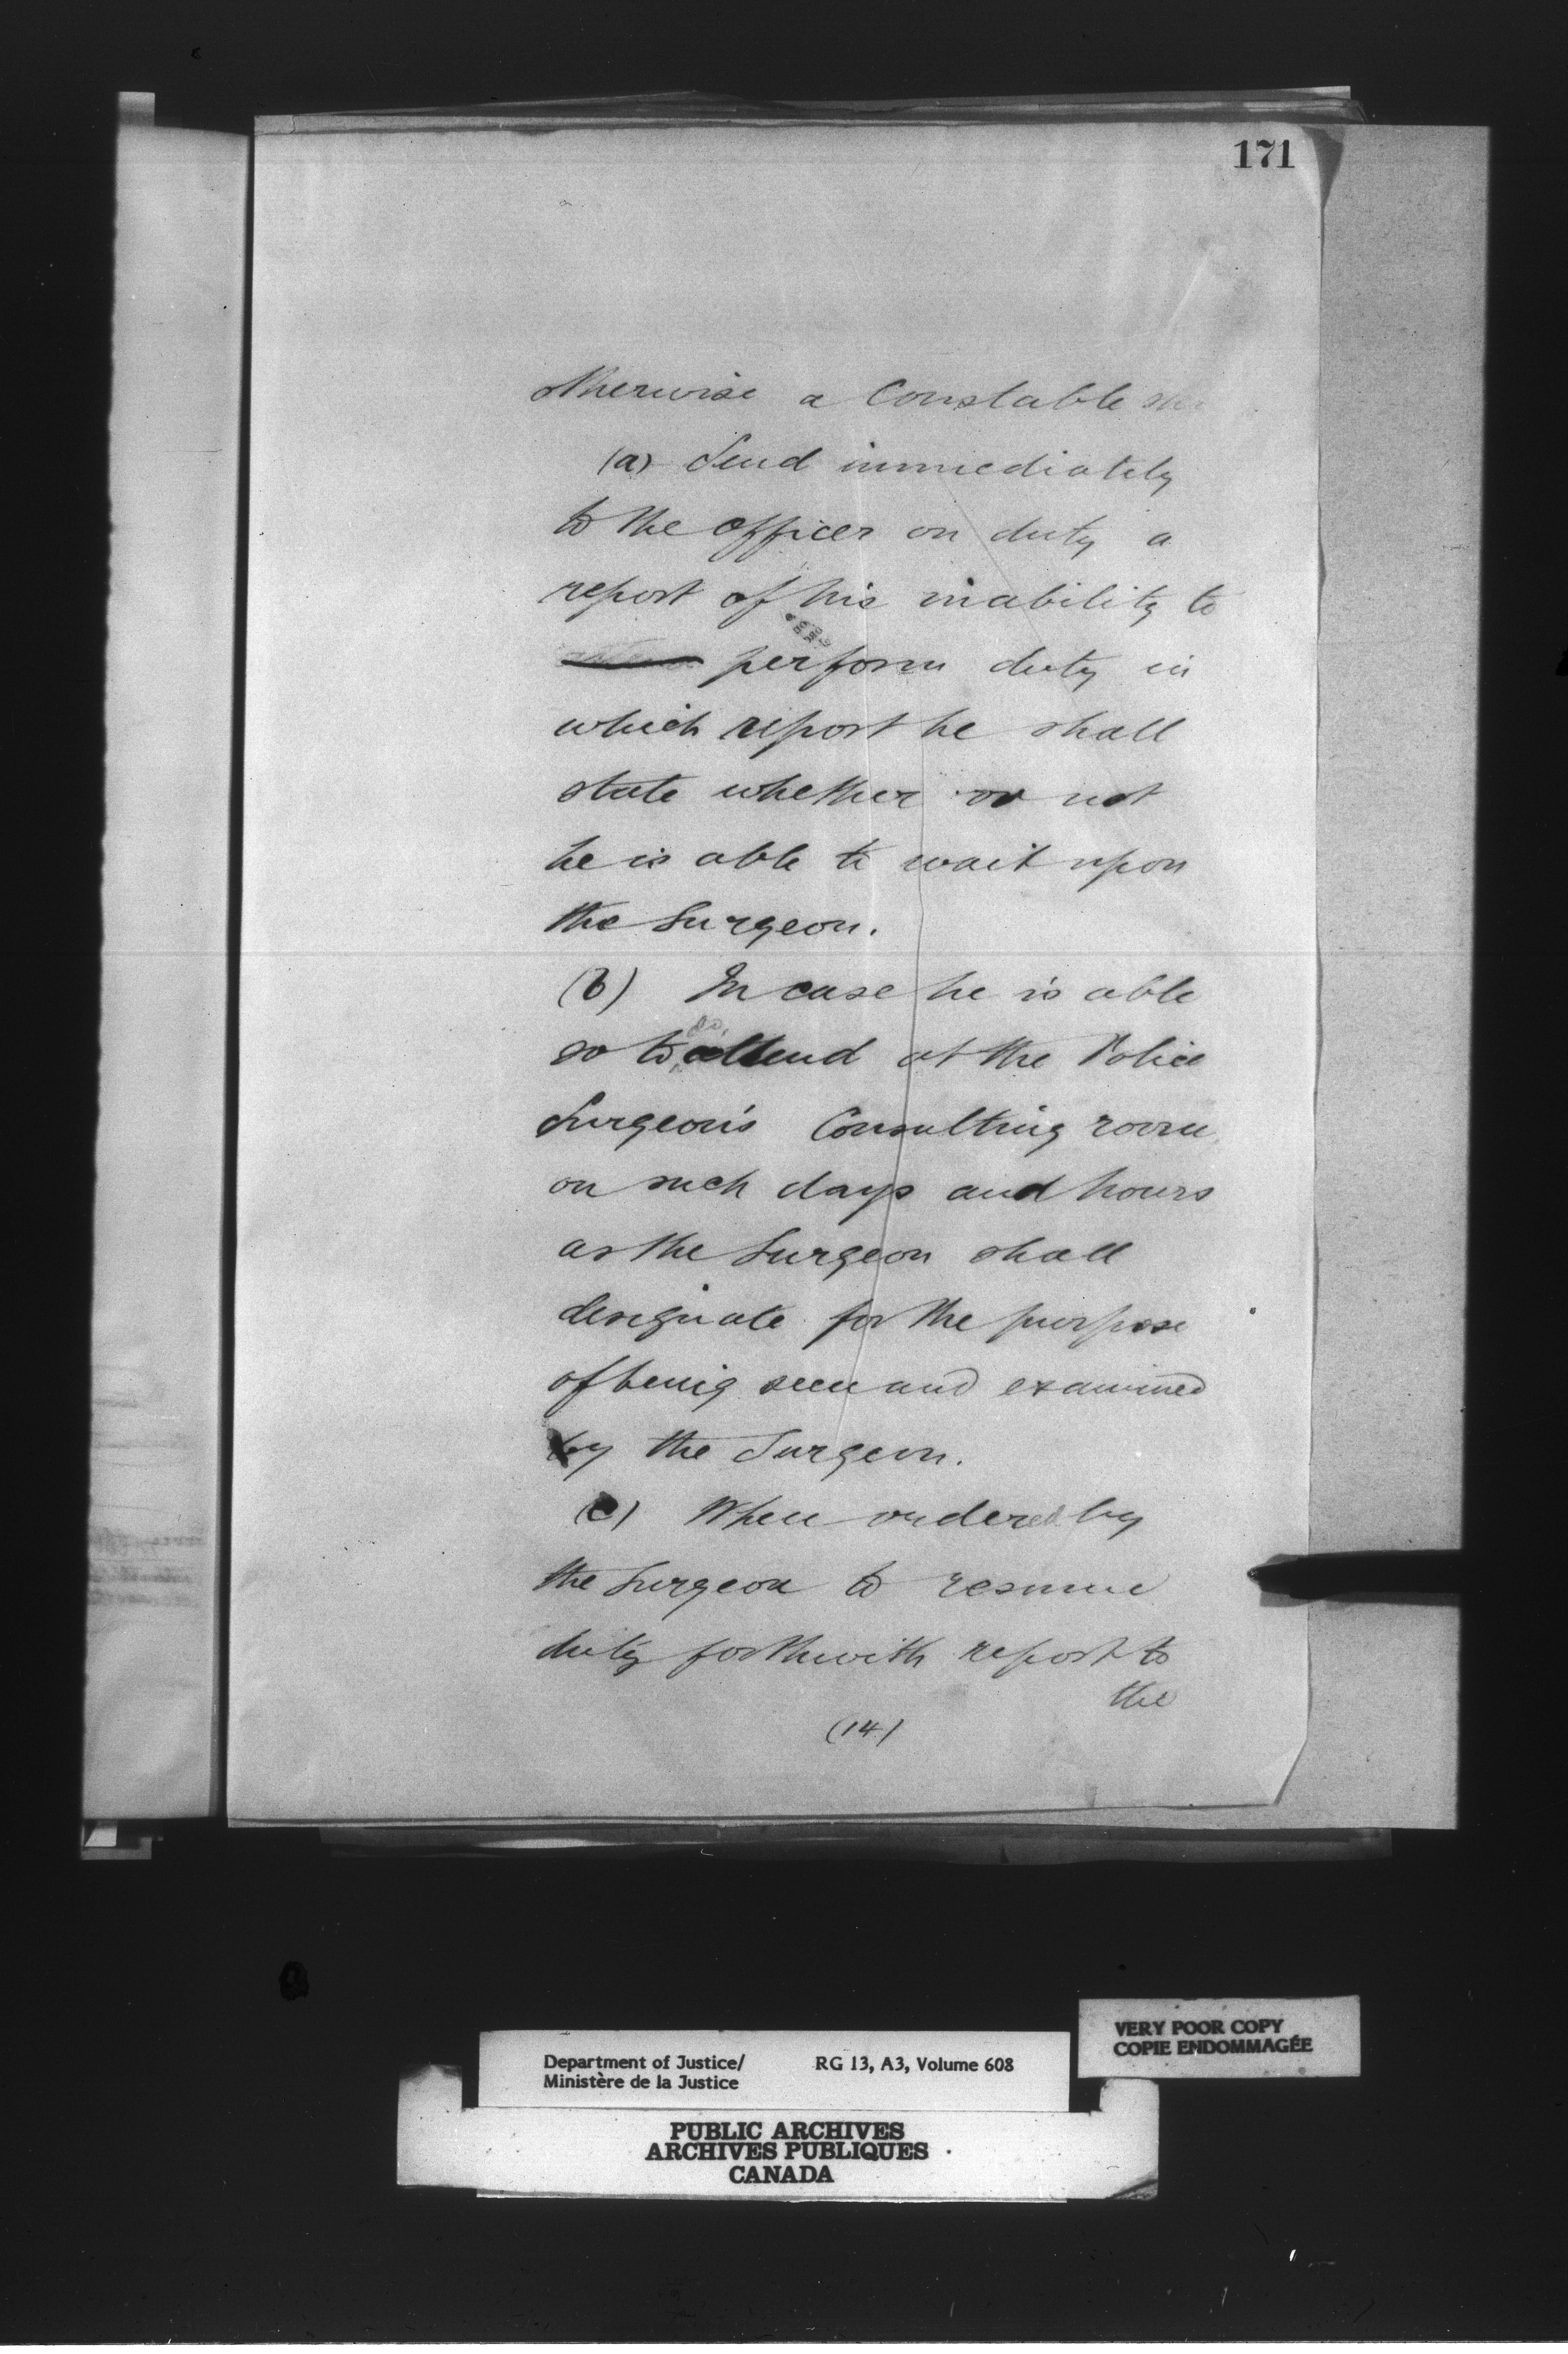 171
otherwise a Constable
(a) Send immediately
to the officer on duty a
report of his inability to
perform duty in
which report he shall
state whether or not
he is able to wait upon
the Surgeon.
(b) In case he is able
so to do, attend at the Police
Surgeon's Consulting room
on such days and hours
as the Surgeon shall
designate for the purpose
of being seen and examined
by the Surgeon.
(c) When ordered by
the Surgeon to resume
duty forthwith report to
the
(14)
VERY POOR COPY
COPIE ENDOMMAGÉE
Department of Justice/ RG 13, A3, Volume 608
Ministère de la Justice
PUBLIC ARCHIVES
ARCHIVES PUBLIQUES
CANADA